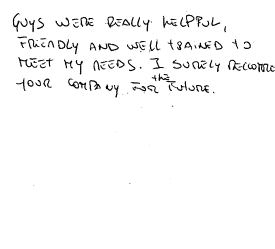 GUYS WERE REALLY HELPFUL,
FRIENDLY AND WELL TRAINED TO
MEET MY NEEDS. I SURELY RECOMME
YOUR COMPANY FOR the FUTURE.